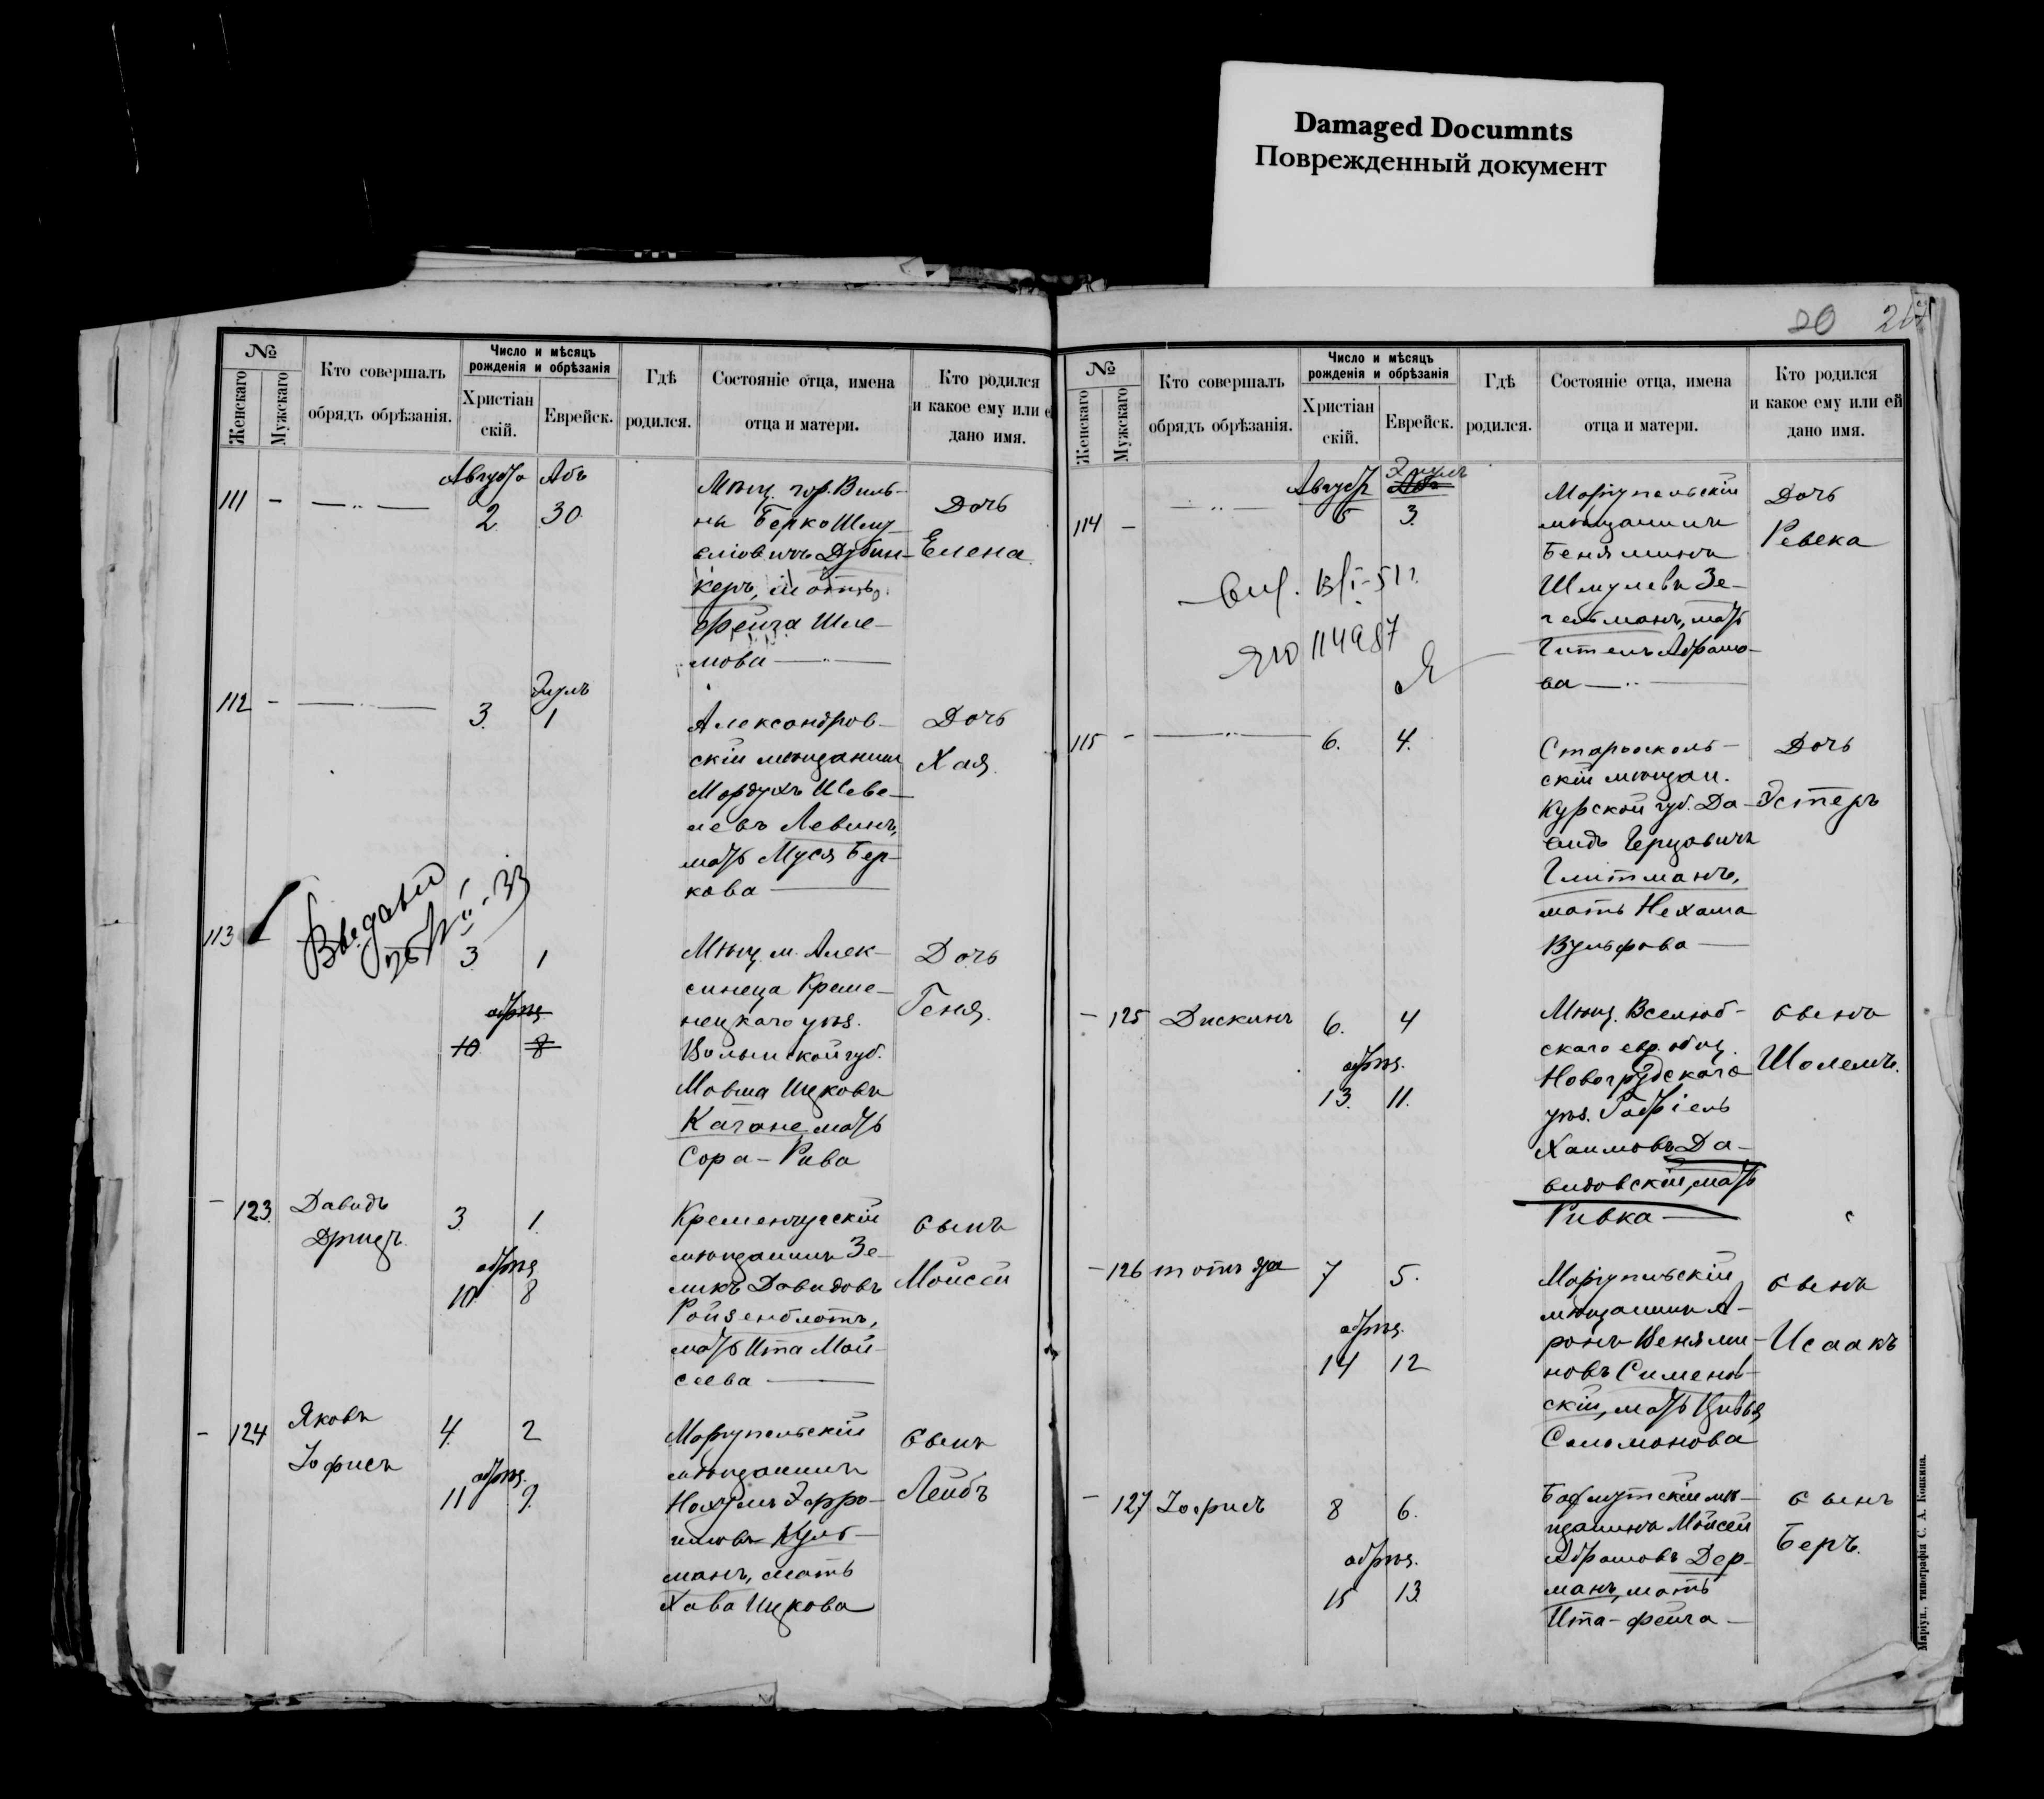 Damaged Documnts
Поврежденный документ
20
№
Женскаго
Мужскаго
Кто совершалъ
обрядъ обрѣзанія.
Число и мѣсяцъ
рожденія и обрѣзанія
Христіан
скій.
Еврейск.
Гдѣ
родился.
Состояніе отца, имена
отца и матери.
Кто родился
и какое ему или е
дано имя.
111 -
Августа Абъ
2 30.
Мѣщ. гор. Виль-
ны Берко Шму
еліовичъ Дубин-
керъ, мать
Фейга Шле-
мова
Дочь
Елена
112 -
Элулъ
3. 1
Александров-
скій мѣщанинъ
Мордухъ Шеве-
левъ Левинъ,
мать Муся Бер-
кова
Дочь
Хая.
113
3. 1
обрѣз
10. 8
Мѣщ. м. Алек-
синеца Креме-
нецкаго уѣз.
Волынской губ.
Мовша Ицковъ
Кагане мать
Сора-Рива
Дочь
Геня.
- 123.
Давидъ
Дрицъ.
3. 1.
обрѣз
10. 8
Кременчугскій
мѣщанинъ Зе-
ликъ Давидовъ
Ройзенблатъ,
мать Ита Мой-
сеева
Сынъ
Мойсей
- 124
Яковъ
Іофисъ
4. 2
обрѣз.
11 9.
Маріупольскій
мѣщанинъ
Нахумъ Эфро-
имовъ Куль-
манъ, мать
Хава Ицкова
Сынъ
Лейбъ
№
Женскаго
Мужскаго
Кто совершалъ
обрядъ обрѣзанія.
Число и мѣсяцъ
рожденія и обрѣзанія
Христіан
скій.
Еврейск.
Гдѣ
родился.
Состояніе отца, имена
отца и матери.
Кто родился
и какое ему или ей
дано имя.
114 -
Августа Элулъ
5 3.
114987
Маріупольскій
мѣщанинъ
Беняминъ
Шмулевъ Зе-
гельманъ, мать
Гитель Абрамо-
ва
Дочь
Ревека
115 -
6. 4.
Старооскль-
скій мѣщан.
Курской губ. Да-
видъ Герцовичъ
Глитманъ,
мать Нехама
Вульфова
Дочь
Эстеръ
- 125
Дискинъ
6. 4
обрѣз.
13. 11.
Мѣщ. Вселюб-
скаго евр. общ.
Новогрудскаго
уѣз. Габріель
Хаимовъ Да-
видовскій, мать
Ривка
Сынъ
Шолемъ.
- 126
тотъ же
7 5.
обрѣз.
14 12
Маріупольскій
мѣщанинъ А-
ронъ Веніями-
новъ Симянов-
скій, мать Цивья
Соломонова
Сынъ
Исаакъ
- 127
Іофисъ
8 6.
обрѣз.
15 13.
Бахмутскій мѣ-
щанинъ Мойсей
Абрамовъ Дер-
манъ, мать
Ита-Фейга
Сынъ
Беръ.
Маріуп., типографія С. А. Копкина.